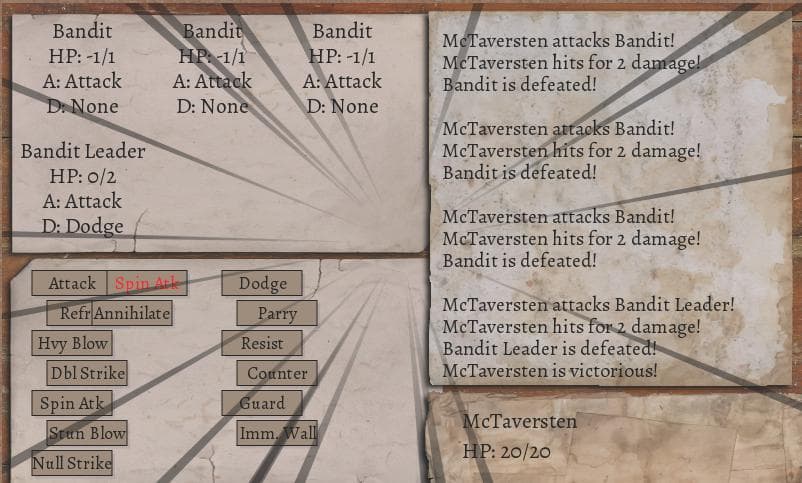 Bandit Bandit Bandit
HP: -1/1 HP: -1/1 HP: -1/1
A: Attack A: Attack A: Attack
D: None D: None D: None
Bandit Leader
HP: 0/2
A: Attack
D: Dodge
McTaversten attacks Bandit!
McTaversten hits for 2 damage!
Bandit is defeated!
McTaversten attacks Bandit!
McTaversten hits for 2 damage!
Bandit is defeated!
McTaversten attacks Bandit!
McTaversten hits for 2 damage!
Bandit is defeated!
McTaversten attacks Bandit Leader!
McTaversten hits for 2 damage!
Bandit Leader is defeated!
McTaversten is victorious!
Attack Spin Atk Dodge
Annihilate Parry
Hvy Blow Resist
Dbl Strike Counter
Spin Atk Guard
Stun Blow Imm. Wall
Null Strike
McTaversten
HP: 20/20